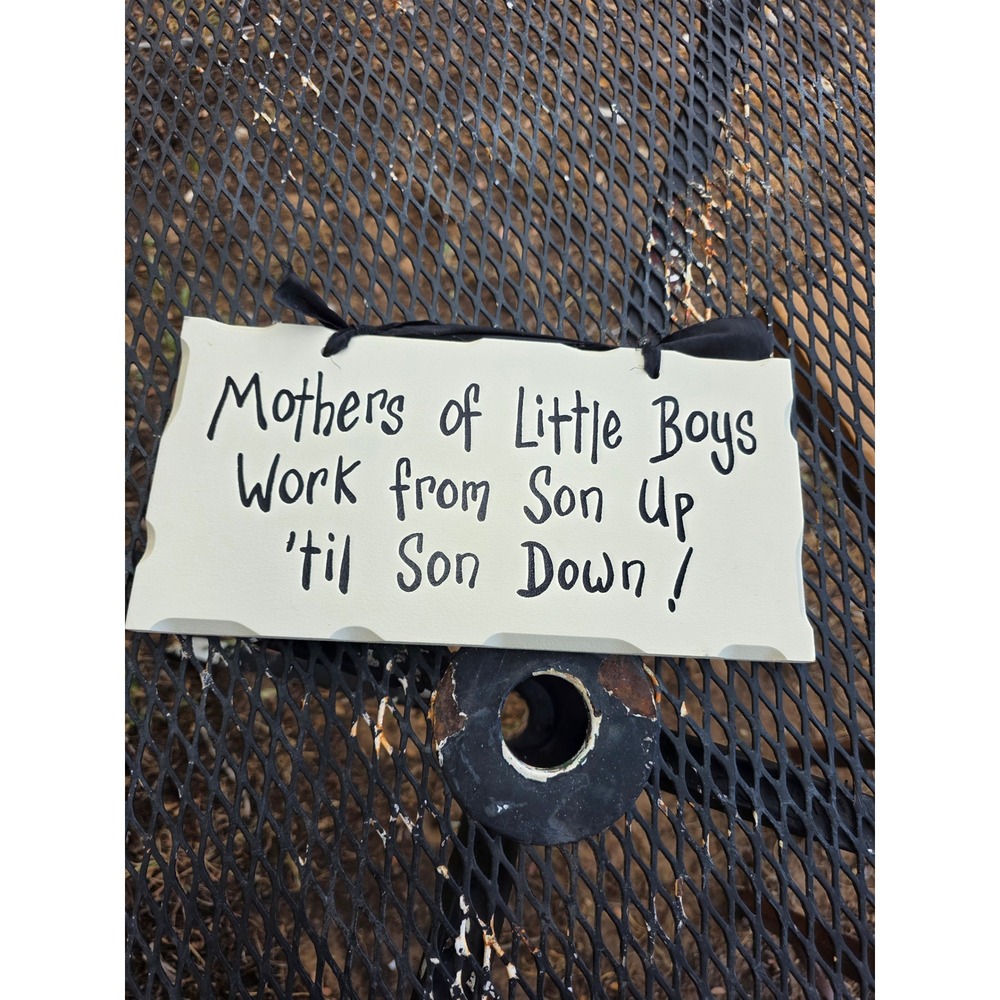 Mothers of Little Boys
Work from Son Up
'til Son Down!